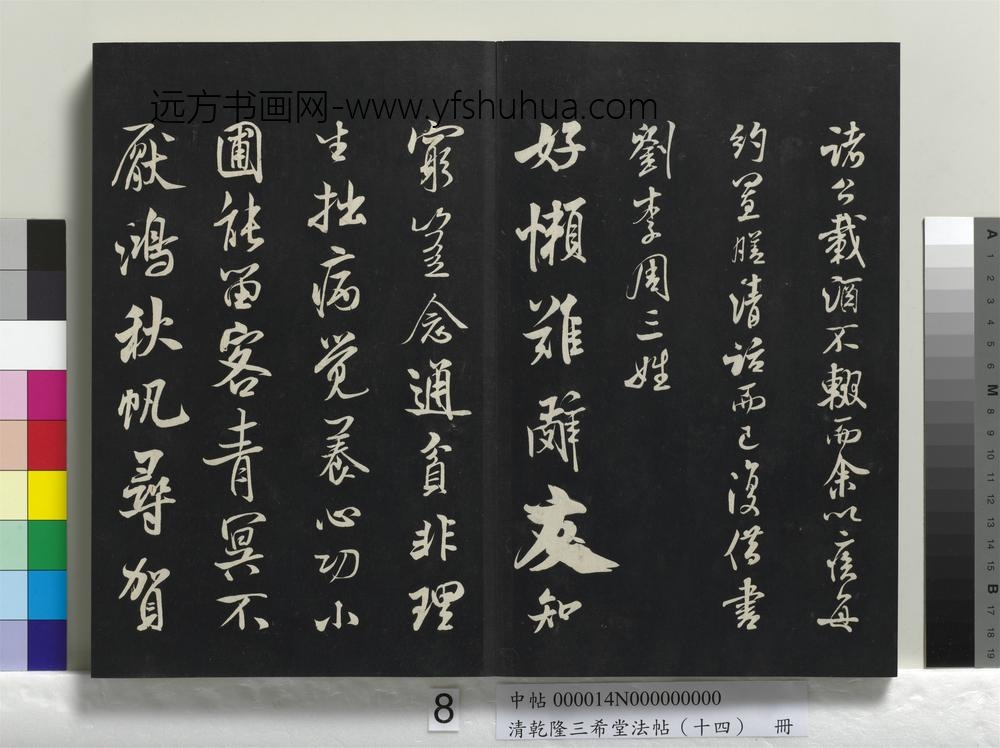 远方书画网-www.yfshuhua.com
諸公載酒不輟而余以疾每
約置膳清話而已復借書
劉李周三姓
好懶難辭友知
窮豈念通貧非理
生拙病覺養心功小
圃能留客青冥不
厭鴻秋帆尋賀
8
中帖 000014N000000000
清乾隆三希堂法帖（十四） 冊
A
1
2
3
4
5
6
M
8
9
10
11
12
13
14
15
B
17
18
19